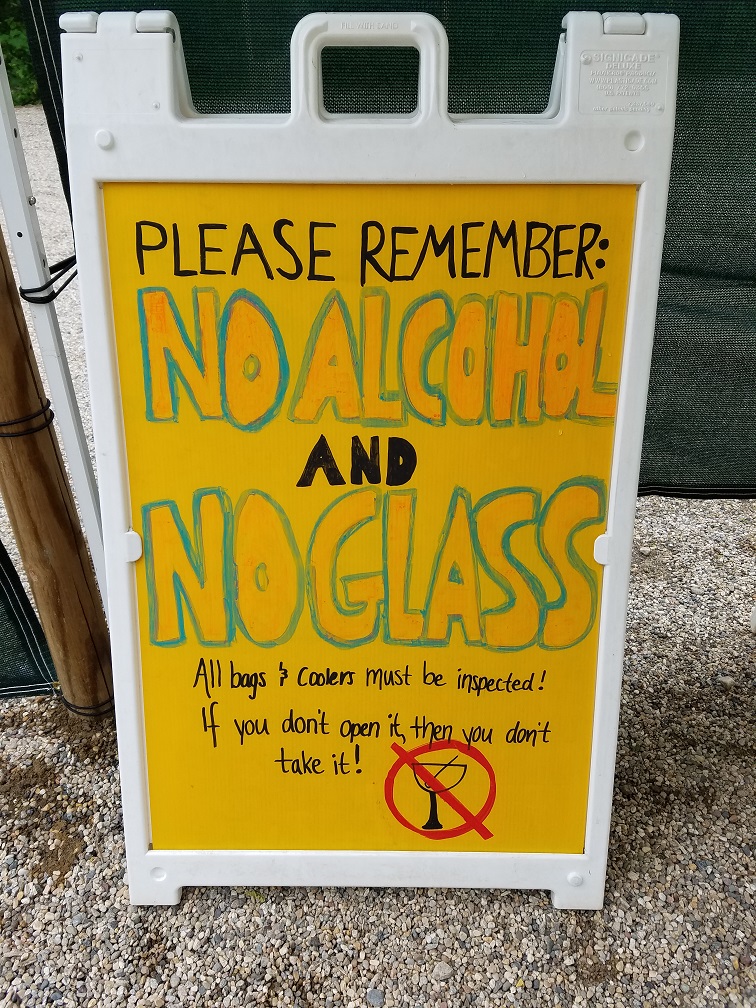 FILL WITH SAND
SIGNICADE
DELUXE
PLEASE REMEMBER:
NO ALCOHOL
AND
NO GLASS
All bags & Coolers must be inspected!
If you don't open it, then you don't
take it!